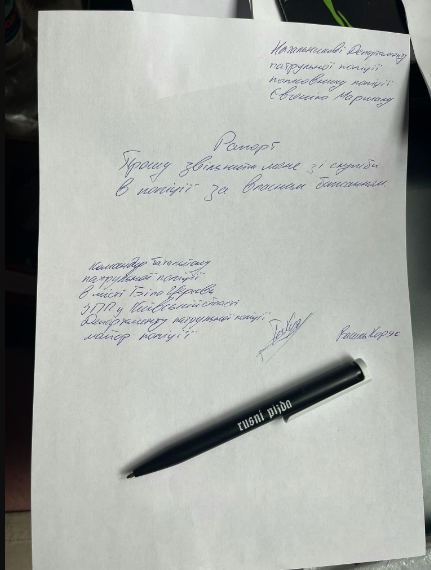 Начальникові Департаменту
патрульної поліції
полковнику поліції
Євгенію
Рапорт
Прошу звільнити мене зі служби
в поліції за власним бажанням.
Командир батальйону
патрульної поліції
в місті Біла Церква
УПП у Київській області
Департаменту патрульної поліції
майор поліції
rusni pizda